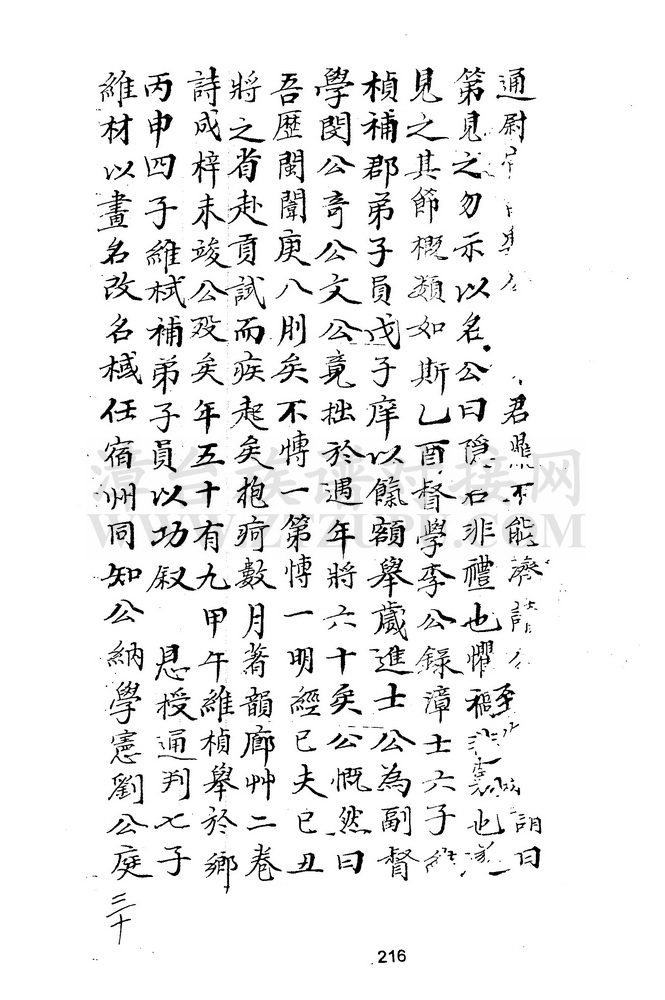 通尉 君 不能濟 至 誚曰
第見之勿示以名公曰隱名非禮也懼禍 也
見之其節概類如斯乙酉督學李公錄漳士六子維
楨補郡弟子員戊子庠以餼額舉歲進士公為副督
學閔公奇公文公竟拙於遇年將六十矣公慨然曰
吾歷閩闈庚八刖矣不慱一第慱一明經已夫已丑
將之省赴貢試而疾起矣抱疴數月著韻廊艸二卷
詩成梓未竣公歿矣年五十有九甲午維楨舉於鄉
丙申四子維栻補弟子員以功叙 恩授通判七子
維材以畫名改名棫任宿州同知公納學憲劉公庭
三十
漳台族谱对接网
WWW.ZTZUPU.COM
216